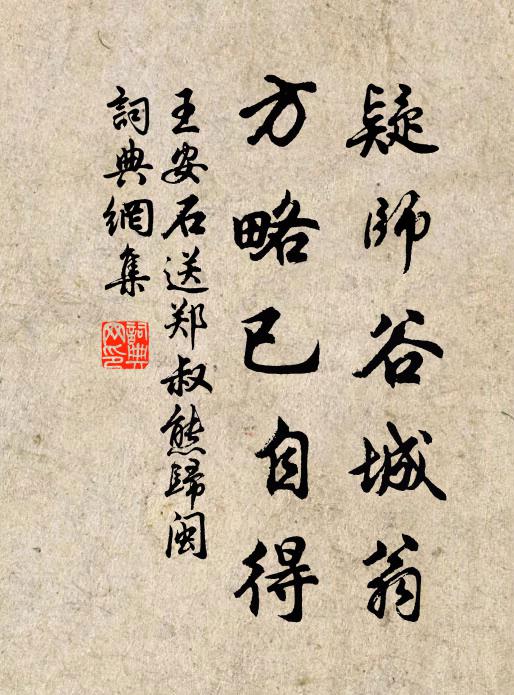 疑師谷城翁
方略已自得
王安石送郑叔熊歸閩
詞典網集
詞典网印